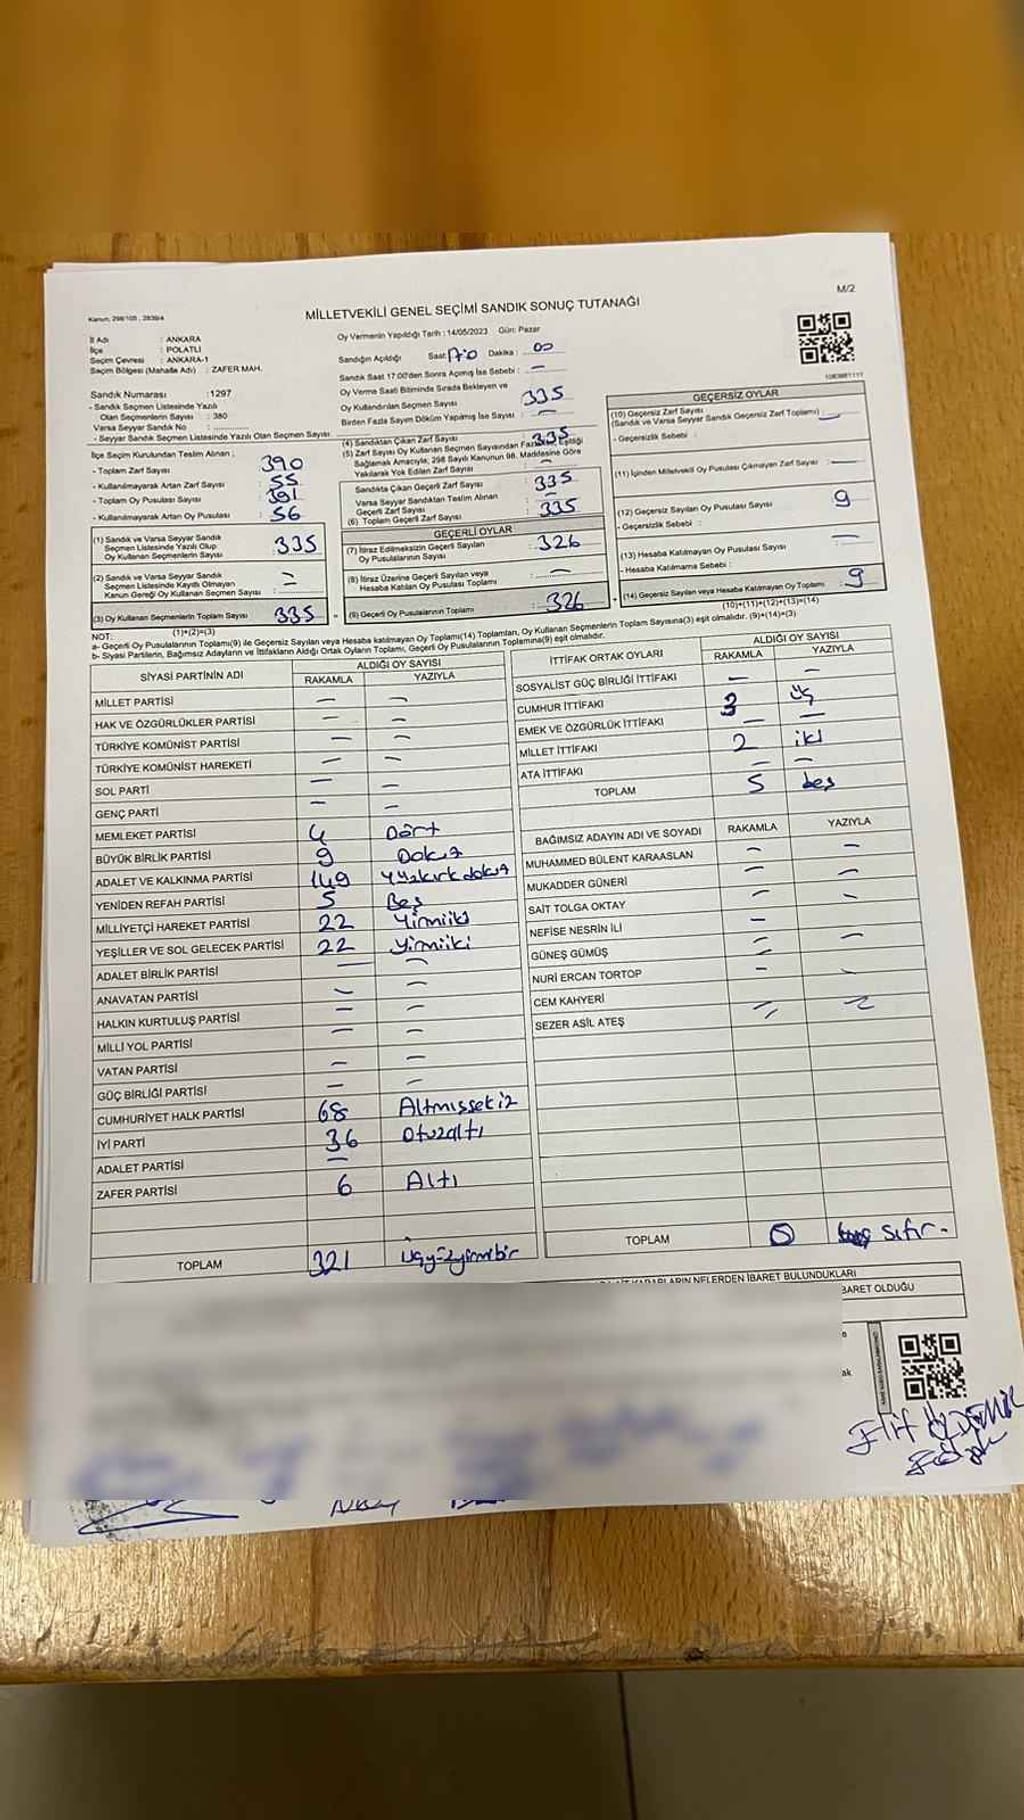 M/2
Kanun: 298/105 , 2839/4
MİLLETVEKİLİ GENEL SEÇİMİ SANDIK SONUÇ TUTANAĞI
İl Adı : ANKARA
İlçe : POLATLI
Seçim Çevresi : ANKARA-1
Seçim Bölgesi (Mahalle Adı) : ZAFER MAH.
Sandık Numarası :1297
- Sandık Seçmen Listesinde Yazılı
Olan Seçmenlerin Sayısı : 380
Varsa Seyyar Sandık No :
- Seyyar Sandık Seçmen Listesinde Yazılı Olan Seçmen Sayısı:
İlçe Seçim Kurulundan Teslim Alınan ;
- Toplam Zarf Sayısı : 390
- Kullanılmayarak Artan Zarf Sayısı : 55
- Toplam Oy Pusulası Sayısı : 391
- Kullanılmayarak Artan Oy Pusulası : 56
(1) Sandık ve Varsa Seyyar Sandık
Seçmen Listesinde Yazılı Olup
Oy Kullanan Seçmenlerin Sayısı : 335
(2) Sandık ve Varsa Seyyar Sandık
Seçmen Listesinde Kayıtlı Olmayan
Kanun Gereği Oy Kullanan Seçmen Sayısı : –
(3) Oy Kullanan Seçmenlerin Toplam Sayısı : 335
(1)+(2)=(3)
Oy Vermenin Yapıldığı Tarih : 14/05/2023 Gün: Pazar
Sandığın Açıldığı Saat: 17:0 Dakika : 00
Sandık Saat 17:00'den Sonra Açılmış İse Sebebi : –
Oy Verme Saati Bitiminde Sırada Bekleyen ve
Oy Kullandırılan Seçmen Sayısı : 335
Birden Fazla Sayım Döküm Yapılmış İse Sayısı : –
(4) Sandıktan Çıkan Zarf Sayısı : 335
(5) Zarf Sayısı Oy Kullanan Seçmen Sayısından Fazla ise, Eşitliği
Sağlamak Amacıyla, 298 Sayılı Kanunun 98. Maddesine Göre
Yakılarak Yok Edilen Zarf Sayısı : –
Sandıkta Çıkan Geçerli Zarf Sayısı : 335
Varsa Seyyar Sandıktan Teslim Alınan
Geçerli Zarf Sayısı : –
(6) Toplam Geçerli Zarf Sayısı : 335
GEÇERLİ OYLAR
(7) İtiraz Edilmeksizin Geçerli Sayılan
Oy Pusulalarının Sayısı : 326
(8) İtiraz Üzerine Geçerli Sayılan veya
Hesaba Katılan Oy Pusulası Toplamı : –
(9) Geçerli Oy Pusulalarının Toplamı : 326
GEÇERSİZ OYLAR
(10) Geçersiz Zarf Sayısı
(Sandık ve Varsa Seyyar Sandık Geçersiz Zarf Toplamı) : –
- Geçersizlik Sebebi :
(11) İçinden Milletvekili Oy Pusulası Çıkmayan Zarf Sayısı : –
(12) Geçersiz Sayılan Oy Pusulası Sayısı : 9
- Geçersizlik Sebebi :
(13) Hesaba Katılmayan Oy Pusulası Sayısı : –
- Hesaba Katılmama Sebebi :
(14) Geçersiz Sayılan veya Hesaba Katılmayan Oy Toplamı : 9
(10)+(11)+(12)+(13)=(14)
NOT:
a- Geçerli Oy Pusulalarının Toplamı(9) ile Geçersiz Sayılan veya Hesaba katılmayan Oy Toplamı(14) Toplamları, Oy Kullanan Seçmenlerin Toplam Sayısına(3) eşit olmalıdır. (9)+(14)=(3)
b- Siyasi Partilerin, Bağımsız Adayların ve İttifakların Aldığı Ortak Oyların Toplamı, Geçerli Oy Pusulalarının Toplamına(9) eşit olmalıdır.
SİYASİ PARTİNİN ADI ALDIĞI OY SAYISI
RAKAMLA YAZIYLA
MİLLET PARTİSİ – –
HAK VE ÖZGÜRLÜKLER PARTİSİ – –
TÜRKİYE KOMÜNİST PARTİSİ – –
TÜRKİYE KOMÜNİST HAREKETİ – –
SOL PARTİ – –
GENÇ PARTİ – –
MEMLEKET PARTİSİ 4 Dört
BÜYÜK BİRLİK PARTİSİ 9 Dokuz
ADALET VE KALKINMA PARTİSİ 149 Yüzkırkdokuz
YENİDEN REFAH PARTİSİ 5 Beş
MİLLİYETÇİ HAREKET PARTİSİ 22 Yirmiiki
YEŞİLLER VE SOL GELECEK PARTİSİ 22 Yirmiiki
ADALET BİRLİK PARTİSİ – –
ANAVATAN PARTİSİ – –
HALKIN KURTULUŞ PARTİSİ – –
MİLLİ YOL PARTİSİ – –
VATAN PARTİSİ – –
GÜÇ BİRLİĞİ PARTİSİ – –
CUMHURİYET HALK PARTİSİ 68 Altmışsekiz
İYİ PARTİ 36 Otuzaltı
ADALET PARTİSİ –
ZAFER PARTİSİ 6 Altı
TOPLAM 321 Üçyüzyirmibir
İTTİFAK ORTAK OYLARI ALDIĞI OY SAYISI
RAKAMLA YAZIYLA
SOSYALİST GÜÇ BİRLİĞİ İTTİFAKI – –
CUMHUR İTTİFAKI 3 üç
EMEK VE ÖZGÜRLÜK İTTİFAKI – –
MİLLET İTTİFAKI 2 iki
ATA İTTİFAKI – –
TOPLAM 5 beş
BAĞIMSIZ ADAYIN ADI VE SOYADI RAKAMLA YAZIYLA
MUHAMMED BÜLENT KARAASLAN – –
MUKADDER GÜNERİ – –
SAİT TOLGA OKTAY – –
NEFİSE NESRİN İLİ –
GÜNEŞ GÜMÜŞ – –
NURİ ERCAN TORTOP – –
CEM KAHYERİ – –
SEZER ASİL ATEŞ
TOPLAM 0 sıfır.
KARARLARIN NELERDEN İBARET BULUNDUKLARI
BARET OLDUĞU
ak
Elif ÖZDEMİR